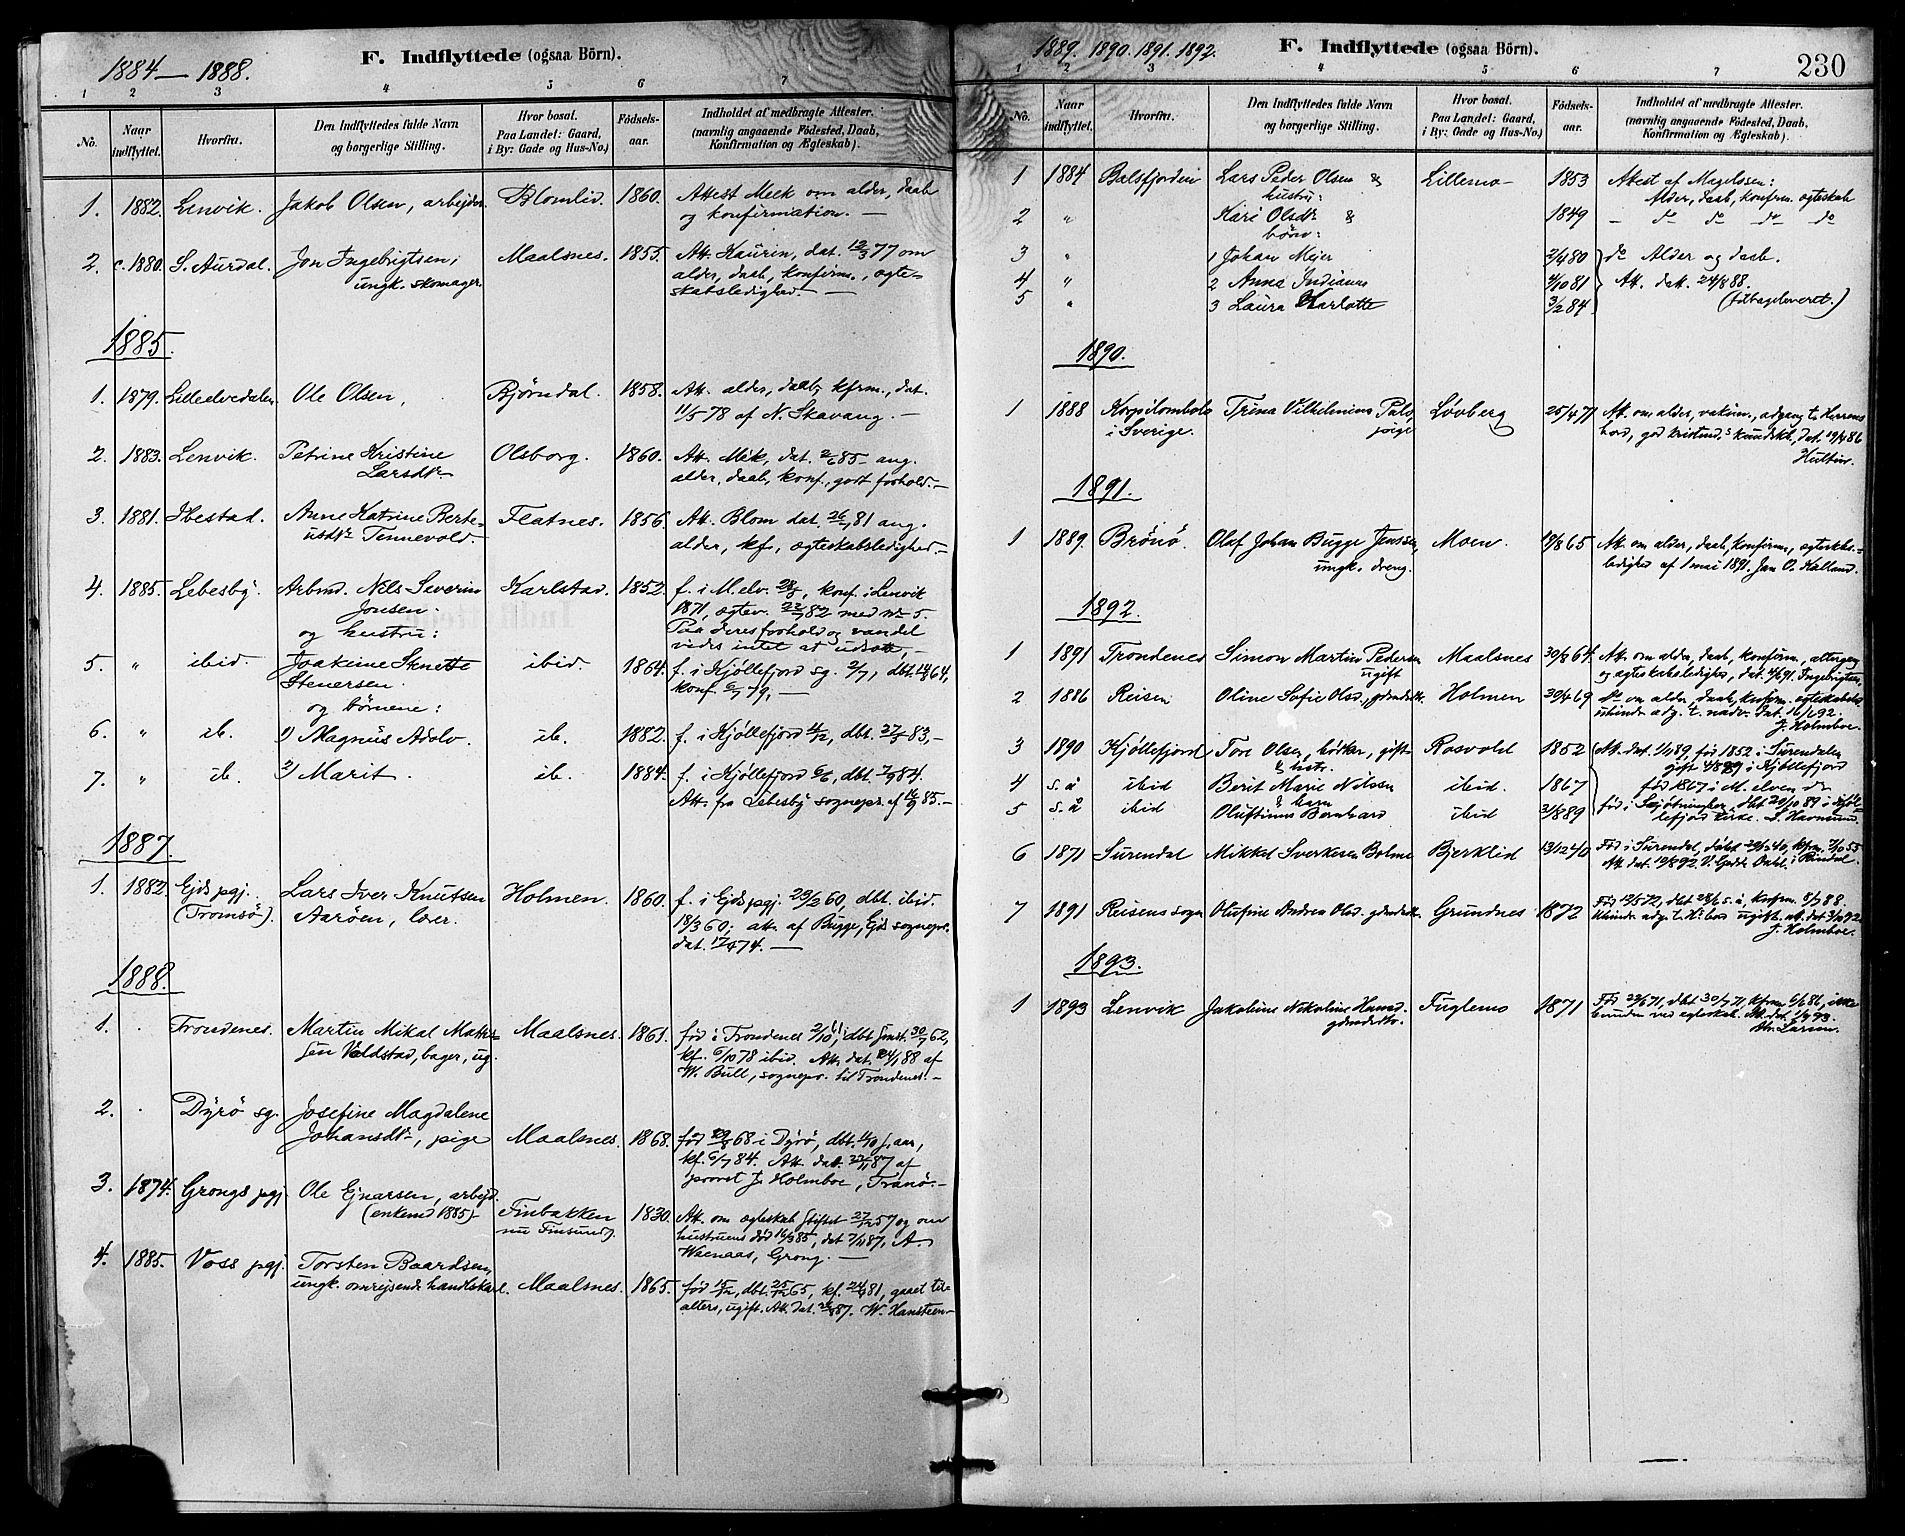 1884 — 1888.
F. Indflyttede (ogsaa Börn).
1 2 3 4 5 6 7
No. Naar indflyttet. Hvorfra. Den Indflyttedes fulde Navn og borgerlige Stilling. Hvor bosat. Paa Landet: Gaard, i By: Gade og Hus-No.) Födsels-aar. Indholdet af medbragte Attester. (navnlig angaaende Födested, Daab, Konfirmation og Ægteskab).
1. 1882. Lenvik. Jakob Olsen, arbejder. Blomlid. 1860. Attest Meek om alder, daab
og konfirmation. —
2. c. 1880. S. Aurdal. Jon Ingebrigtsen, Maalsnes. 1855. Att. Kaurin, dat. 12/3 77 om
ungk. skomager. alder, daab, konfirm., ægte-
skabsledighed. —
1885.
1. 1879. Lilleelvedalen Ole Olsen, Bjørndal. 1858. Att. alder, daab, kfrm., dat.
11/5 78 af N. Skavang. —
2. 1883. Lenvik. Petrine Kristine Olsborg. 1860. Att. Mek, dat. 85 ang.
Larsdtr. alder, daab, konf., godt forhold. —
3. 1881. Ibestad. Anne Katrine Berte- Flatnes. 1856. Att. Blom dat. 81 ang.
usdtr Tennevold. alder, kf., ægteskabsledighed. —
4. 1885. Lebesby. Arbmd. Nils Severin Karlstad. 1852. f. i M.elv. konf. i Lenvik
Jonsen. 1871, ægtev. 82 med nr 5.
og hustru: Paa deres forhold og vandel
vides intet at udsætte, —
5. " ibid. Joakine Stenette ibid. 1864. f. i Kjøllefjord sg. 2/7, dbt. 64,
Stenersen. konf. 79, —
og børnene:
6. " ib. 1) Magnus Adolv. ib. 1882. f. i Kjøllefjord dbt. 83, —
7. " ib. 2) Marit. ib. 1884. f. i Kjøllefjord 6/6, dbt. 7/9 84.
Att. fra Lebesby sognepr. af 85. —
1887.
1. 1882. Ejds pgj. Lars Iver Knutsen Holmen. 1860. f. i Ejds pgj. 23/2 60, dbt. ibid.
(Tromsö). Aarøen, lærer. 18/3 60; att. af Bugge, Ejds sognepr.
dat. 74. —
1888.
1. . Trondenes. Martin Mikal Mathi- Maalsnes. 1861. født i Trondenes 2/10 61, dbt. 62,
sen Valdstad, bager, ug. kf. 6/10 78 ibid. Att. dat. 24/1 88 af
W. Bull, sognepr. til Trondenes. —
2. . Dyrö sg. Josefine Magdalene
Johansdtr, pige Maalsnes. 1868. født 68 i Dyrö, dbt. s. aar,
kf. 6/7 84. Att. dat. 87 af
provst J. Holmboe, Tranö. —
3. 1874. Grongs pgj. Ole Ejnarsen, arbejd.
(enkemd 1885) Finbakken 1830. Att. om ægteskab stiftet 27/12 57 og om
nu Finsund). hustruens død 16/3 85, dat 7/11 87, A.
Waenaas, Grong. —
4. 1885. Voss pgj. Torsten Baardsen,
ungk. omrejsende handlskarl. Maalsnes. 1865. født 15/12, dbt. 25/12 65, kf. 81, gaaet til
alters, ugift. Att. dat. 87. W. Hansteen. —
1889. 1890. 1891. 1892.
F. Indflyttede (ogsaa Börn).
230
1 2 3 4 5 6 7
No. Naar indflyttet. Hvorfra. Den Indflyttedes fulde Navn og borgerlige Stilling. Hvor bosat. Paa Landet: Gaard, i By: Gade og Hus-No.) Födsels-aar. Indholdet af medbragte Attester. (navnlig angaaende Födested, Daab, Konfirmation og Ægteskab).
1 1884 Balsfjorden Lars Peder Olsen & Lillemo 1853 Attest af Magelssen:
hustru: Alder, daab, konfrm. ægteskab
2 " Kari Olsdtr & 1849 — do do do do
børn:
3 " 1 Johan Mejer 2/4 80 do Alder og daab.
4 " 2 Anna Indianna 4/10 81 Att. dat. 24/8 88.
5 " 3 Laura Charlotte 3/2 84 (tilbageleveret.)
1890.
1 1888 Korpilombolo Trina Vilhelmina Palo Løvberg 25/4 71 Att. om alder, vaksin., adgang t. Herrens
i Sverige. pige bord, god kristend.s kundsk., dat. 19/4 86
Hultin.
1891.
1 1889. Brönö. Olaf Johan Bugge Jenssen, Moen. 19/8 65 Att. om alder, daab, konfirm., ægteskbs.-
ungk. dreng. ledighed af 1 mai 1891. Jan O. Kalland.
1892.
1 1891 Trondenes Simon Martin Pedersen Maalsnes 30/8 64 Att. om alder, daab, konfirm., altergang
ugift og ægteskabsledighed, dat. 91. Ingebrigtsen,
2 1886 Reisen Oline Sofie Olsd., gdmdsdtr. Holmen 30/4 69 Att om alder, daab, konfirm. ægteskabs
uhindr. adg. t. nadv. dat. 92.
J. Holmboe.
3 1890 Kjøllefjord Tore Olsen, bødker, gift Rosvold 1852 Att. dat. 89 før 1852 i Surendalen
& hstr. gift 89 i Kjøllefjord
4 s. å ibid Berit Marie Nilsen ibid. 1867 født 1867 i M.elven do
& barn
5 s. å ibid Olufinus Bernhard ibid 31/8 89 født i dbt 20/10 89 i Kjøl-
lefjord kirke.
6 1871 Surendal Mikkel Sverkesen Bolme Bjerklid 13/12 40 Fdt i Surendal, døbt 40, kfrm. 55
Att. dat. 19/8 92. i Rindal.
7 1891 Reisens sogn Olufine Andrea Olsd. gdmdsdtr. Grundnes 1872 Fdt 12/5 72, dbt s. å., konfrm. 8/7 88.
Uhindr. adg. t. H's bord ugift. att. dat 3/10 92
J. Holmboe.
1893.
1 1893 Lenvik Jakobine Nikoline Hansd. Fuglemo 1871 Fdt 71, dbt 30/7 71, kfrm 86, ikke
gdmdsdtr. bunden ved ægteskab. Att. dat. 93.
Larsen.